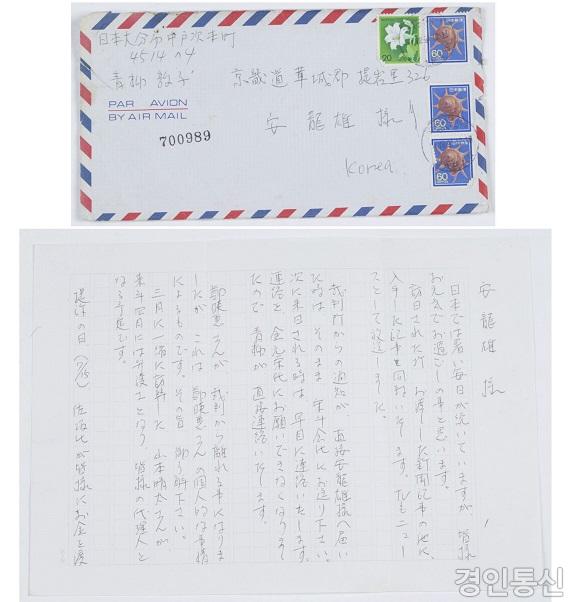 日本大分市中戸次本町
4514の4
青柳敦子
京畿道華城郡提岩里326
安龍雄様
Korea.
PAR AVION
BY AIR MAIL
700989
20
60
60
60
安龍雄様
日本では暑い毎日が続いていますが 皆様
お元気でお過ごしの事と思います。
訪日された折 お渡しした新聞記事の他に、
入手した記事を同封いたします。TVもニュー
スとして放送しました。
裁判所からの通知が 直接安龍雄様へ届い
た時は そのまま 宋斗会氏にお送り下さい。
次に来日される時は 早目に連絡いたします。
連絡を 金元栄氏にお願いできなくなりまし
たので 青柳が 直接連絡いたします。
鄭暎恵さんが 裁判から離れる事になりま
したが これは 鄭暎恵さんの個人的な事情
によるものです。その旨 御了解下さい。
三月に一緒に訪韓した 山本晴太さんが、
来年四月には弁護士となり 皆様の代理人と
なる予定です。
提訴の日(7/15) 佐治氏が皆様にお金を渡
경인통신